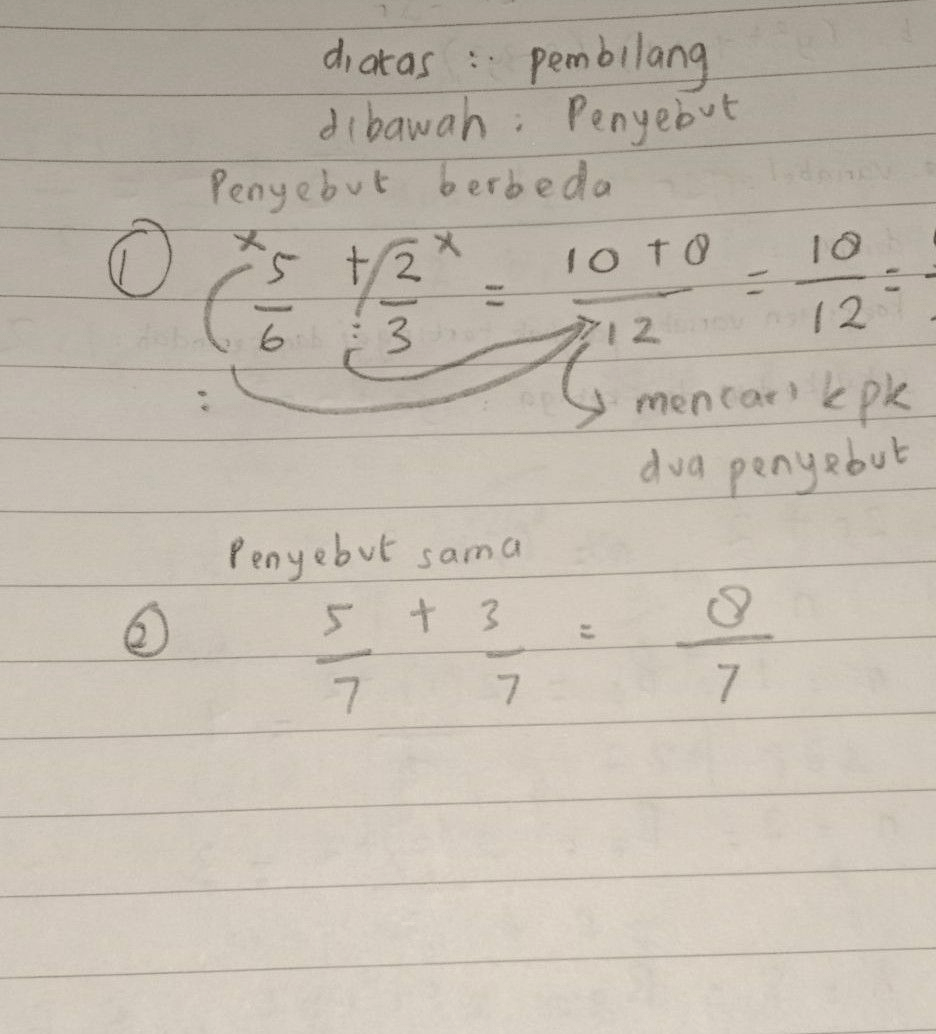 diatas : pembilang
dibawah : Penyebut
Penyebut berbeda
① × 5/6 + 2/3 × = 10 + 8/12 = 18/12 =
: :
mencari kpk
dua penyebut
Penyebut sama
② 5/7 + 3/7 = 8/7